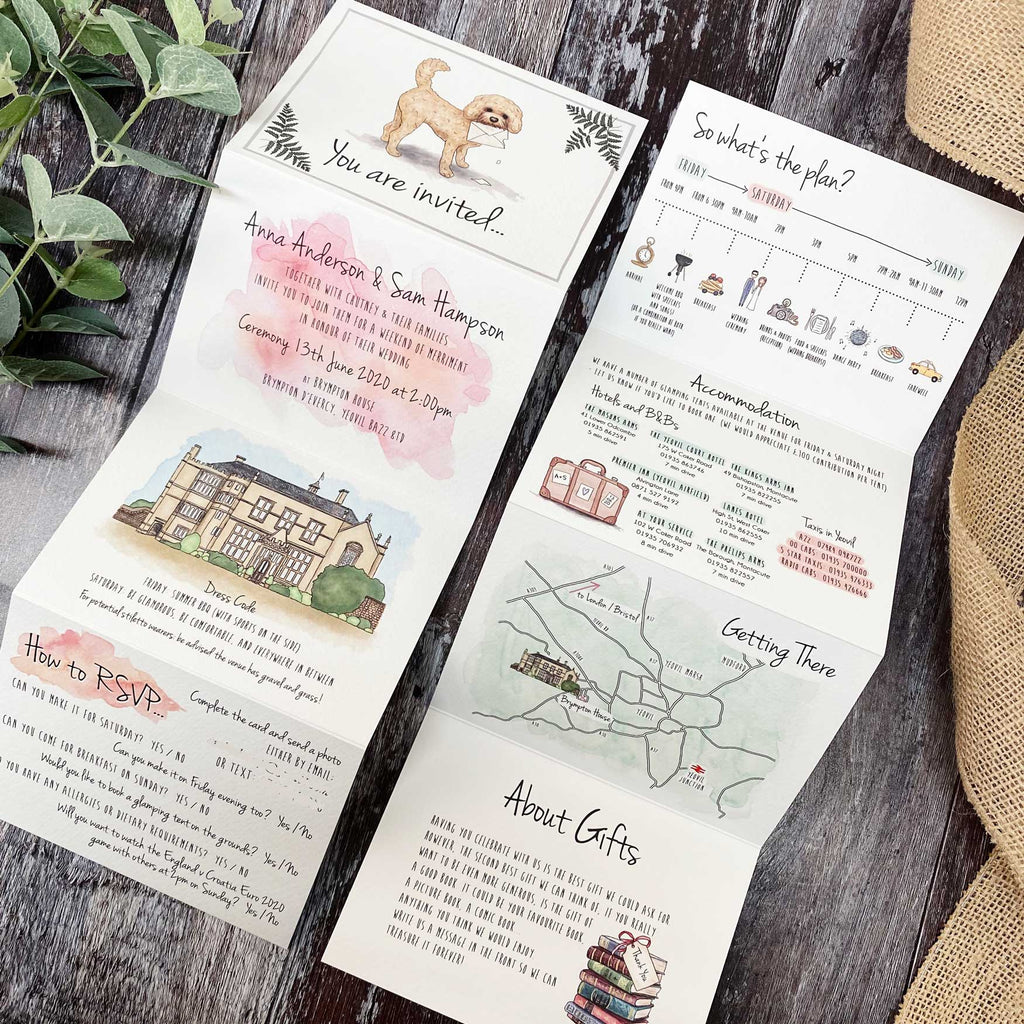 You are invited...
Anna Anderson & Sam Hampson
TOGETHER WITH CHUTNEY & THEIR FAMILIES
INVITE YOU TO JOIN THEM FOR A WEEKEND OF MERRIMENT
IN HONOUR OF THEIR WEDDING
Ceremony 13th June 2020 at 2:00pm
AT BRYMPTON HOUSE
BRYMPTON D'EVERCY, YEOVIL BA22 8TD
Dress Code
FRIDAY: SUMMER BBQ (WITH SPORTS ON THE SIDE)
SATURDAY: BE GLAMOROUS, BE COMFORTABLE, AND EVERYWHERE IN BETWEEN
For potential stiletto wearers: be advised the venue has gravel and grass!
How to RSVP...
Complete the card and send a photo
EITHER BY EMAIL:
OR TEXT
CAN YOU MAKE IT FOR SATURDAY? YES / NO
Can you make it on Friday evening too? Yes / No
CAN YOU COME FOR BREAKFAST ON SUNDAY? YES / NO
Would you like to book a glamping tent on the grounds? Yes / No
YOU HAVE ANY ALLERGIES OR DIETARY REQUIREMENTS? YES / NO
Will you want to watch the England v Croatia Euro 2020
game with others at 2pm on Sunday? Yes / No
So what's the plan?
FRIDAY
SATURDAY
SUNDAY
FROM 4PM
FROM 6.30PM
9AM-10AM
2PM
3PM
5PM
7PM-2AM
9AM-11.30AM
12PM
ARRIVE
WELCOME BBQ
WITH SPEECHES
AND SONGS!
(OR A COMBINATION OF BOTH
IF YOU REALLY WANT)
BREAKFAST
WEDDING
CEREMONY
DRINKS & PHOTOS
(RECEPTION)
FOOD & SPEECHES
(WEDDING BREAKFAST)
DANCE PARTY
BREAKFAST
FAREWELL
Accommodation
WE HAVE A NUMBER OF GLAMPING TENTS AVAILABLE AT THE VENUE FOR FRIDAY & SATURDAY NIGHT
- LET US KNOW IF YOU'D LIKE TO BOOK ONE (WE WOULD APPRECIATE £300 CONTRIBUTION PER TENT)
Hotels and B&Bs
THE MASONS ARMS
41 Lower Odcombe
01935 862591
5 min drive
THE YEOVIL COURT HOTEL
175 W Coker Road
01935 863746
7 min drive
THE KINGS ARMS INN
49 Bishopston, Montacute
01935 822255
7 min drive
PREMIER INN (YEOVIL AIRFIELD)
Alvington Lane
0871 527 9192
4 min drive
LANES HOTEL
High St, West Coker
01935 862555
10 min drive
AT YOUR SERVICE
102 W Coker Road
01935 706932
8 min drive
THE PHELIPS ARMS
The Borough, Montacute
01935 822557
7 min drive
A+S
Taxis in Yeovil
A2Z: 07989 098722
OO CABS: 01935 700000
5 STAR TAXIS: 01935 476333
RADIO CARS: 01935 426666
Getting There
to London / Bristol
YEOVIL MARSH
MUDFORD
Brympton House
YEOVIL
YEOVIL
JUNCTION
About Gifts
HAVING YOU CELEBRATE WITH US IS THE BEST GIFT WE COULD ASK FOR
HOWEVER, THE SECOND BEST GIFT WE CAN THINK OF, IF YOU REALLY
WANT TO BE EVEN MORE GENEROUS, IS THE GIFT OF
A GOOD BOOK. IT COULD BE YOUR FAVOURITE BOOK,
A PICTURE BOOK, A COMIC BOOK,
ANYTHING YOU THINK WE WOULD ENJOY
WRITE US A MESSAGE IN THE FRONT SO WE CAN
TREASURE IT FOREVER!
Thank You